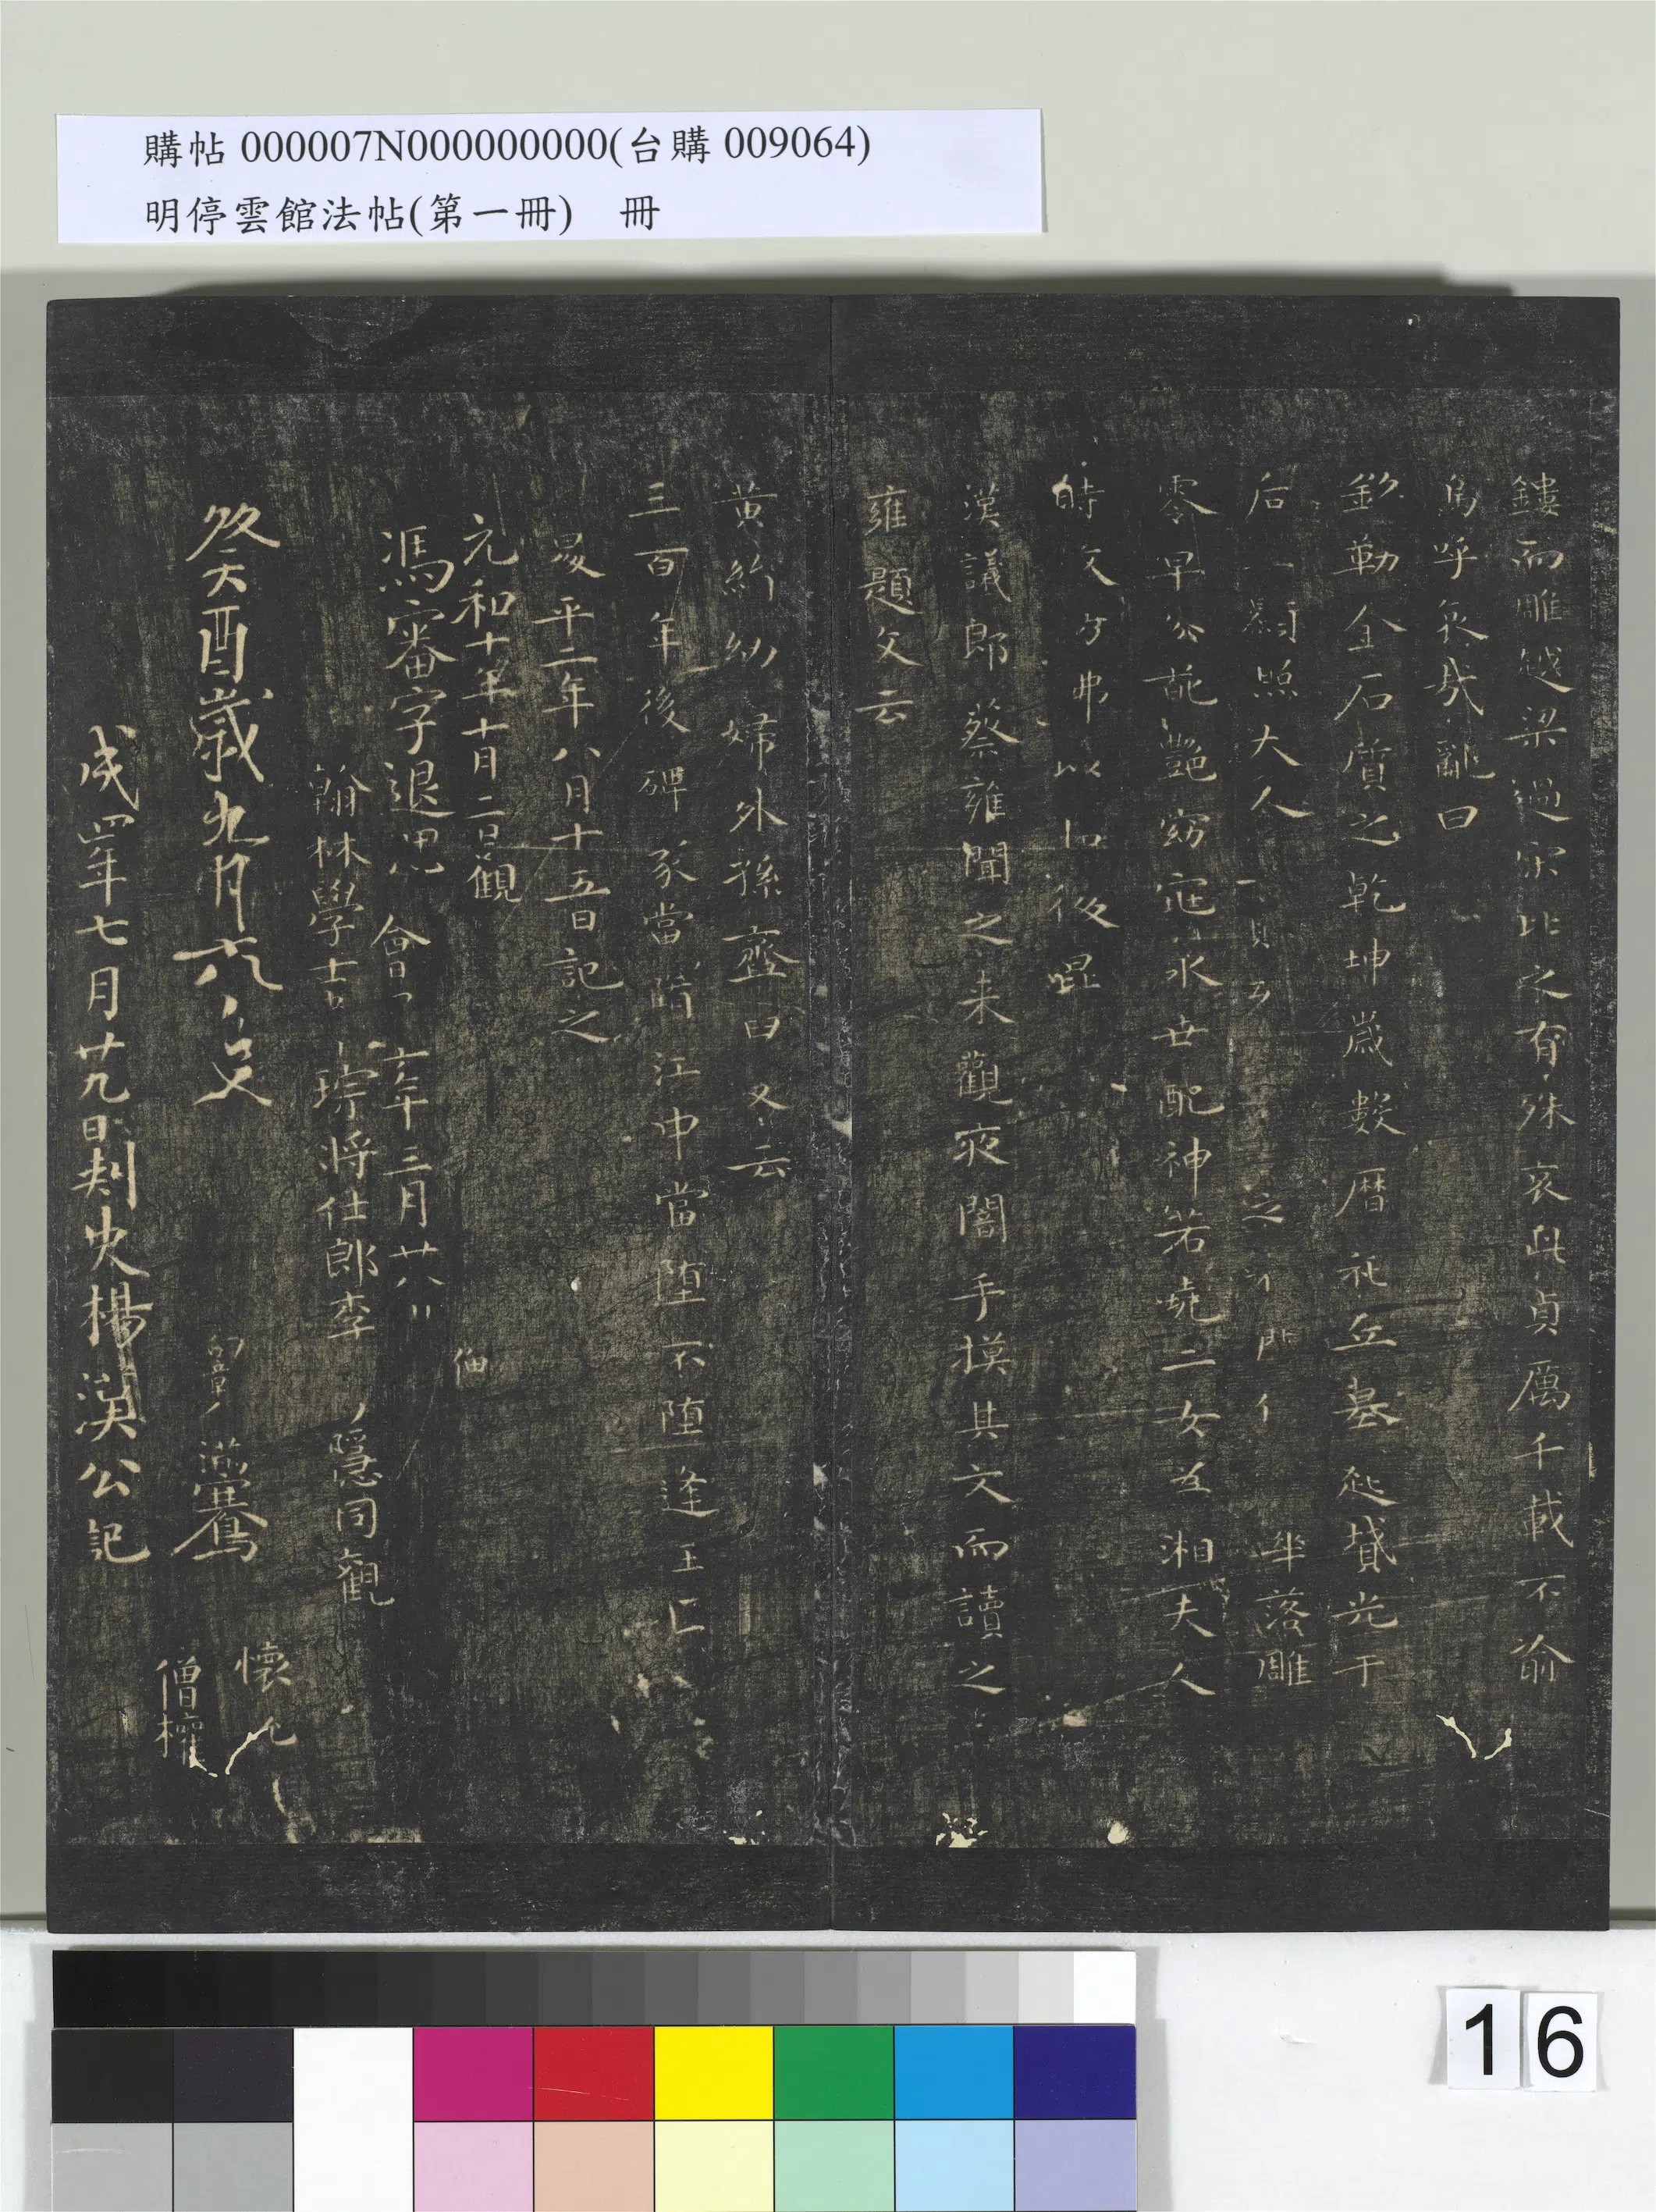 購帖 000007N000000000(台購 009064)
明停雲館法帖(第一冊) 冊
鏤而雕越梁過宋比之有殊哀此貞厲千載不渝
嗚呼哀哉亂曰
銘勒金石質之乾坤歲數曆祀立墓起墳光于
后 照大人 之 門 華落雕
零早分葩艷窈窕永世配神若堯二女為湘夫人
時 弗以 後昆
漢議郎蔡雍聞之来觀夜闇手摸其文而讀之
雍題文云
黃絹幼婦外孫齏臼又云
三百年後碑冢當墮江中當墮不墮逢王叵
昇平二年八月十五日記之
元和十年十月二日觀
馮審字退思 會 六年三月廿八
翰林學士 琮將仕郎李 隱同觀
癸酉歲九月六 滿騫 懷
僧權
成四年七月廿九日刺史楊漢公記
16